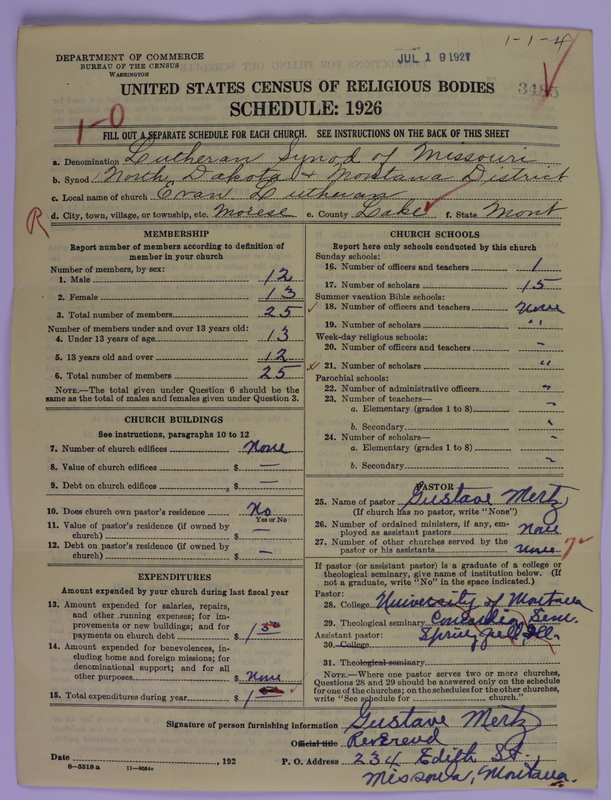 1-1-4
DEPARTMENT OF COMMERCE
BUREAU OF THE CENSUS
WASHINGTON
JUL 19 1927
3485
UNITED STATES CENSUS OF RELIGIOUS BODIES
SCHEDULE: 1926
1-0
FILL OUT A SEPARATE SCHEDULE FOR EACH CHURCH. SEE INSTRUCTIONS ON THE BACK OF THIS SHEET
a. Denomination Lutheran Synod of Missouri
b. Synod North Dakota & Montana District
c. Local name of church Evan Lutheran
d. City, town, village, or township, etc. Moiese e. County Lake f. State Mont
R
MEMBERSHIP
Report number of members according to definition of member in your church
Number of members, by sex:
1. Male 12
2. Female 13
3. Total number of members 25
Number of members under and over 13 years old:
4. Under 13 years of age 13
5. 13 years old and over 12
6. Total number of members 25
NOTE.—The total given under Question 6 should be the same as the total of males and females given under Question 3.
CHURCH BUILDINGS
See instructions, paragraphs 10 to 12
7. Number of church edifices None
8. Value of church edifices $ —
9. Debt on church edifices $ —
10. Does church own pastor's residence No
Yes or No
11. Value of pastor's residence (if owned by church) $ —
12. Debt on pastor's residence (if owned by church) $ —
EXPENDITURES
Amount expended by your church during last fiscal year
13. Amount expended for salaries, repairs, and other running expenses; for improvements or new buildings; and for payments on church debt $
14. Amount expended for benevolences, including home and foreign missions; for denominational support; and for all other purposes $ None
15. Total expenditures during year $
CHURCH SCHOOLS
Report here only schools conducted by this church
Sunday schools:
16. Number of officers and teachers 1
17. Number of scholars 15
Summer vacation Bible schools:
18. Number of officers and teachers None
19. Number of scholars "
Week-day religious schools:
20. Number of officers and teachers "
21. Number of scholars "
Parochial schools:
22. Number of administrative officers "
23. Number of teachers—
a. Elementary (grades 1 to 8) "
b. Secondary "
24. Number of scholars—
a. Elementary (grades 1 to 8) "
b. Secondary "
PASTOR
25. Name of pastor Gustave Mertz
(If church has no pastor, write "None")
26. Number of ordained ministers, if any, employed as assistant pastors None
27. Number of other churches served by the pastor or his assistants None
If pastor (or assistant pastor) is a graduate of a college or theological seminary, give name of institution below. (If not a graduate, write "No" in the space indicated.)
Pastor:
28. College University of Montana
29. Theological seminary Concordia Sem.
Assistant pastor: Springfield, Ill.
30. College
31. Theological seminary
NOTE.—Where one pastor serves two or more churches, Questions 28 and 29 should be answered only on the schedule for one of the churches; on the schedules for the other churches, write "See schedule for ______ church."
Signature of person furnishing information Gustave Mertz
Official title Reverend
Date ______, 192 P. O. Address 234 Edith St.,
8-5518 a
Missoula, Montana.